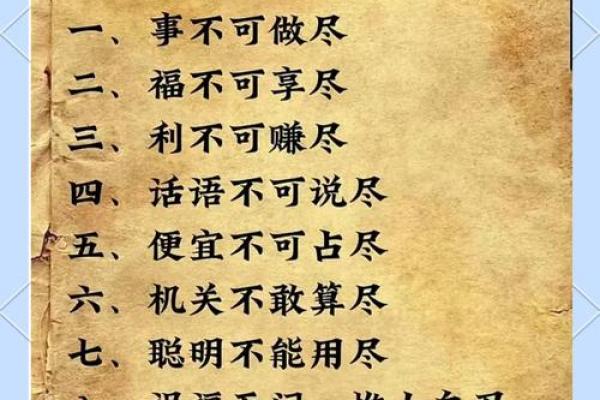 一、事不可做尽
二、福不可享尽
三、利不可赚尽
四、话语不可说尽
五、便宜不可占尽
六、机关不敢算尽
七、聪明不能用尽